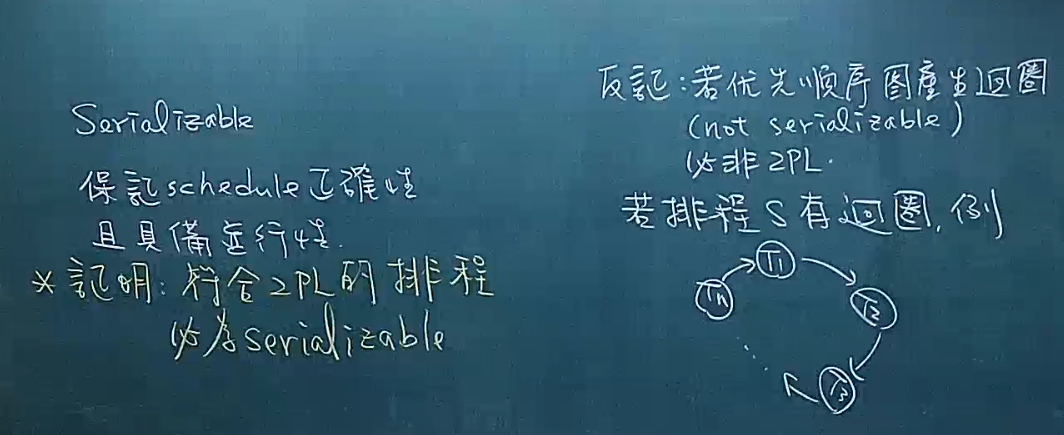 Serializable
保証schedule正確性
且具備並行性.
*証明: 符合2PL的排程
必為serializable
反証:若优先順序圖產生迴圈
(not serializable)
必非2PL.
若排程S有迴圈,例
T1
Tn
T2
T3